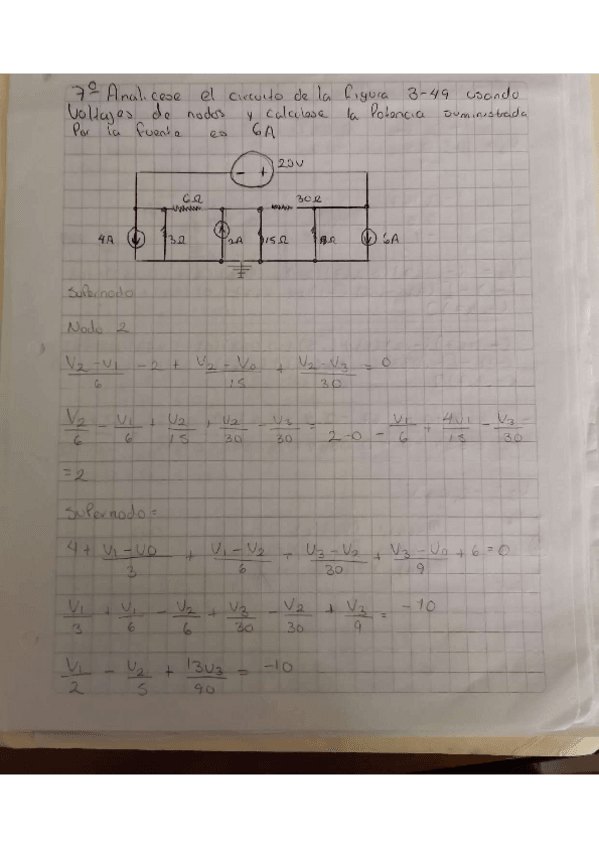 7º Analicese el circuito de la figura 3-49 usando
Voltajes de nodos y calculese la Potencia suministrada
Por la fuente es 6A
20V
- +
6Ω 30Ω
4A 3Ω 2A 15Ω 6A
Supernodo
Nodo 2
V2-V1/6 - 2 + V2-V0/15 + V2-V3/30 = 0
V2/6 - V1/6 + V2/15 + V2/30 - V3/30 = 2-0 - V1/6 + 4V1/15 - V3/30
=2
Supernodo=
4+ V1-V0/3 + V1-V2/6 - V3-V2/30 + V3-V0/9 +6=0
V1/3 + V1/6 - V2/6 + V3/30 - V2/30 + V3/9 = -10
V1/2 - V2/5 + 13V3/90 = -10